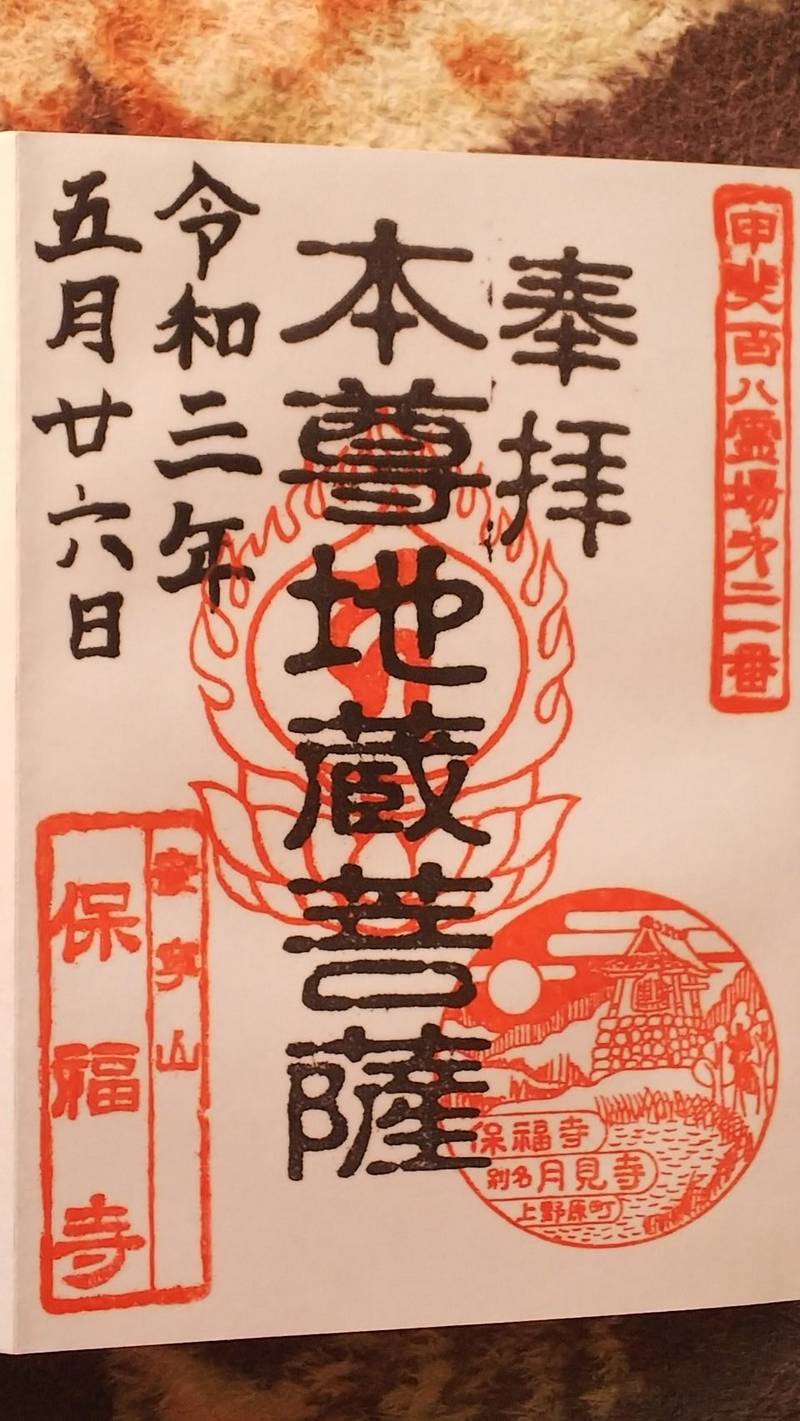 甲斐百八霊場第二一番
奉拝
本尊地蔵菩薩
令和三年
五月廿六日
保福寺
別名月見寺
上野原町
保福寺